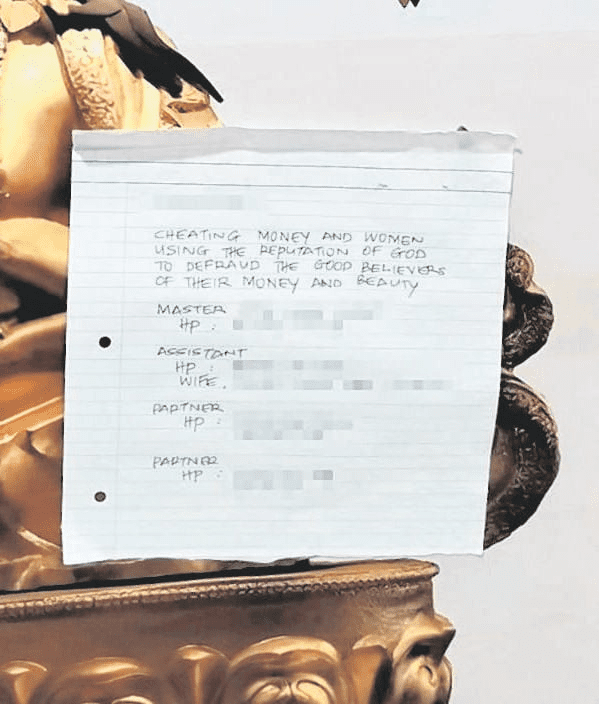 CHEATING MONEY AND WOMEN
USING THE REPUTATION OF GOD
TO DEFRAUD THE GOOD BELIEVERS
OF THEIR MONEY AND BEAUTY
MASTER
HP :
ASSISTANT
HP :
WIFE.
PARTNER
HP :
PARTNER
HP :